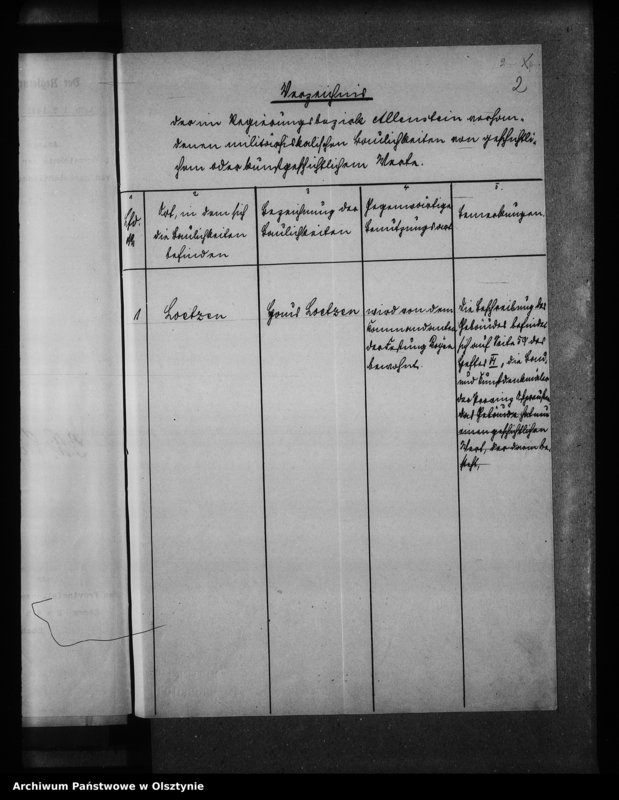 2
2
Verzeichnis
der im Regierungsbezirk Allenstein vorhan-
denen militärfiskalischen Baulichkeiten von geschichtli-
chem oder kunstgeschichtlichem Werte.
1
Lfd.
№
2
Ort, in dem sich
die Baulichkeiten
befinden
3
Bezeichnung der
Baulichkeiten
4
Gegenwärtige
Benutzungsart
5.
Bemerkungen.
1
Loetzen
Haus Loetzen
wird von dem
Kommandanten
der Festung Boyen
bewohnt.
Die Beschreibung des
Gebäudes befindet
sich auf Seite 59 des
Heftes VI, die Bau
und Kunstdenkmäler
der Provinz Ostpreußen
das Gebäude hat nur
einen geschichtlichen
Wert, der darin be-
steht,
Archiwum Państwowe w Olsztynie